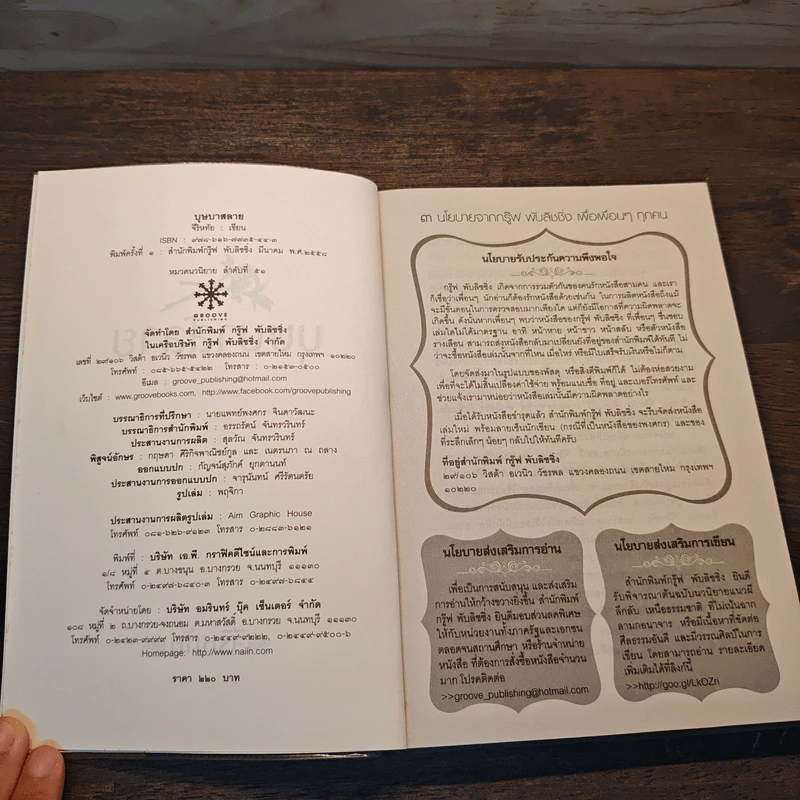 บุษบาสลาย
จิรัหทัย : เขียน
ISBN : ๙๗๘-๖๑๖-๗๗๓๕-๔๔-๓
พิมพ์ครั้งที่ ๑ : สำนักพิมพ์กรู๊ฟ พับลิชชิ่ง มีนาคม พ.ศ.๒๕๕๘
หมวดนวนิยาย ลำดับที่ ๕๑
GROOVE
PUBLISHING
จัดทำโดย สำนักพิมพ์ กรู๊ฟ พับลิชชิ่ง
ในเครือบริษัท กรู๊ฟ พับลิชชิ่ง จำกัด
เลขที่ ๒๙/๑๐๖ วิสต้า อเวนิว วัชรพล แขวงคลองถนน เขตสายไหม กรุงเทพฯ ๑๐๒๒๐
โทรศัพท์ : ๐๘๕-๖๖๕-๕๔๒๒ โทรสาร : ๐-๒๑๕๓-๐๕๐๕
อีเมล : groove_publishing@hotmail.com
เว็บไซต์ : www.groovebooks.com, http://www.facebook.com/groovepublishing
บรรณาธิการที่ปรึกษา : นายแพทย์พงศกร จินดาวัฒนะ
บรรณาธิการสำนักพิมพ์ : อรรถรัตน์ จันทรวรินทร์
ประสานงานการผลิต : สุลวัณ จันทรวรินทร์
พิสูจน์อักษร : กฤษดา ศิริกิจพาณิชย์กูล และ เนตรนภา ณ ถลาง
ออกแบบปก : กัญจน์สุภัคค์ ยุกตานนท์
ประสานงานการออกแบบปก : จารุนันทน์ ศรีรัตนตรัย
รูปเล่ม : พฤจิกา
ประสานงานการผลิตรูปเล่ม : Aim Graphic House
โทรศัพท์ ๐๘๑-๖๒๖-๙๑๒๓ โทรสาร ๐-๒๘๘๓-๖๑๒๑
พิมพ์ที่ : บริษัท เอ.พี. กราฟิคดีไซน์และการพิมพ์
๑/๘ หมู่ที่ ๕ ต.บางขนุน อ.บางกรวย จ.นนทบุรี ๑๑๑๓๐
โทรศัพท์ ๐-๒๔๙๗-๖๘๔๐-๓ โทรสาร ๐-๒๔๙๗-๖๘๔๔
จัดจำหน่ายโดย : บริษัท อมรินทร์ บุ๊ค เซ็นเตอร์ จำกัด
๑๐๘ หมู่ที่ ๒ ถ.บางกรวย-จงถนอม ต.มหาสวัสดิ์ อ.บางกรวย จ.นนทบุรี ๑๑๑๓๐
โทรศัพท์ ๐-๒๔๒๓-๙๙๙๙ โทรสาร ๐-๒๔๔๙-๙๒๒๒, ๐-๒๔๔๙-๙๕๐๐-๖
Homepage: http://www.naiin.com
ราคา ๒๒๐ บาท
๓ นโยบายจากกรู๊ฟ พับลิชชิ่ง เพื่อเพื่อนๆ ทุกคน
นโยบายรับประกันความพึงพอใจ
กรู๊ฟ พับลิชชิ่ง เกิดจากการรวมตัวกันของคนรักหนังสือสามคน และเรา
ก็เชื่อว่าเพื่อนๆ นักอ่านก็ต้องรักหนังสือด้วยเช่นกัน ในการผลิตหนังสือถึงแม้
จะมีขั้นตอนในการตรวจสอบมากเพียงใด แต่ก็ยังมีโอกาสที่ความผิดพลาดจะ
เกิดขึ้น ดังนั้นหากเพื่อนๆ พบว่าหนังสือของกรู๊ฟ พับลิชชิ่ง ที่เพื่อนๆ ชื่นชอบ
เล่มใดไม่ได้มาตรฐาน อาทิ หน้าหาย หน้าขาว หน้าสลับ หรือตัวหนังสือ
รางเลือน สามารถส่งหนังสือกลับมาเปลี่ยนยังที่อยู่ของสำนักพิมพ์ได้ทันที ไม่
ว่าจะซื้อหนังสือเล่มนั้นจากที่ไหน เมื่อไหร่ หรือมีใบเสร็จรับเงินหรือไม่ก็ตาม
โดยจัดส่งมาในรูปแบบของพัสดุ หรือสิ่งตีพิมพ์ก็ได้ ไม่ต้องห่อสวยงาม
เพื่อที่จะได้ไม่สิ้นเปลืองค่าใช้จ่าย พร้อมแนบชื่อ ที่อยู่ และเบอร์โทรศัพท์ และ
ช่วยแจ้งเรามาหน่อยว่าหนังสือเล่มนั้นมีความผิดพลาดอย่างไร
เมื่อได้รับหนังสือชำรุดแล้ว สำนักพิมพ์กรู๊ฟ พับลิชชิ่ง จะรีบจัดส่งหนังสือ
เล่มใหม่ พร้อมลายเซ็นนักเขียน (กรณีที่เป็นหนังสือของพงศกร) และของ
ที่ระลึกเล็กๆ น้อยๆ กลับไปให้ทันทีครับ
ที่อยู่สำนักพิมพ์ กรู๊ฟ พับลิชชิ่ง
๒๙/๑๐๖ วิสต้า อเวนิว วัชรพล แขวงคลองถนน เขตสายไหม กรุงเทพฯ
๑๐๒๒๐
นโยบายส่งเสริมการอ่าน
เพื่อเป็นการสนับสนุน และส่งเสริม
การอ่านให้กว้างขวางยิ่งขึ้น สำนักพิมพ์
กรู๊ฟ พับลิชชิ่ง ยินดีมอบส่วนลดพิเศษ
ให้กับหน่วยงานทั้งภาครัฐและเอกชน
ตลอดจนสถานศึกษา หรือร้านจำหน่าย
หนังสือ ที่ต้องการสั่งซื้อหนังสือจำนวน
มาก โปรดติดต่อ
>>groove_publishing@hotmail.com
นโยบายส่งเสริมการเขียน
สำนักพิมพ์กรู๊ฟ พับลิชชิ่ง ยินดี
รับพิจารณาต้นฉบับนวนิยายแนวผี
ลึกลับ เหนือธรรมชาติ ที่ไม่เน้นฉาก
ลามกอนาจาร หรือมีเนื้อหาที่ขัดต่อ
ศีลธรรมอันดี และมีวรรณศิลป์ในการ
เขียน โดยสามารถอ่าน รายละเอียด
เพิ่มเติมได้ที่ลิงก์นี้
>>http://goo.gl/LkOZri